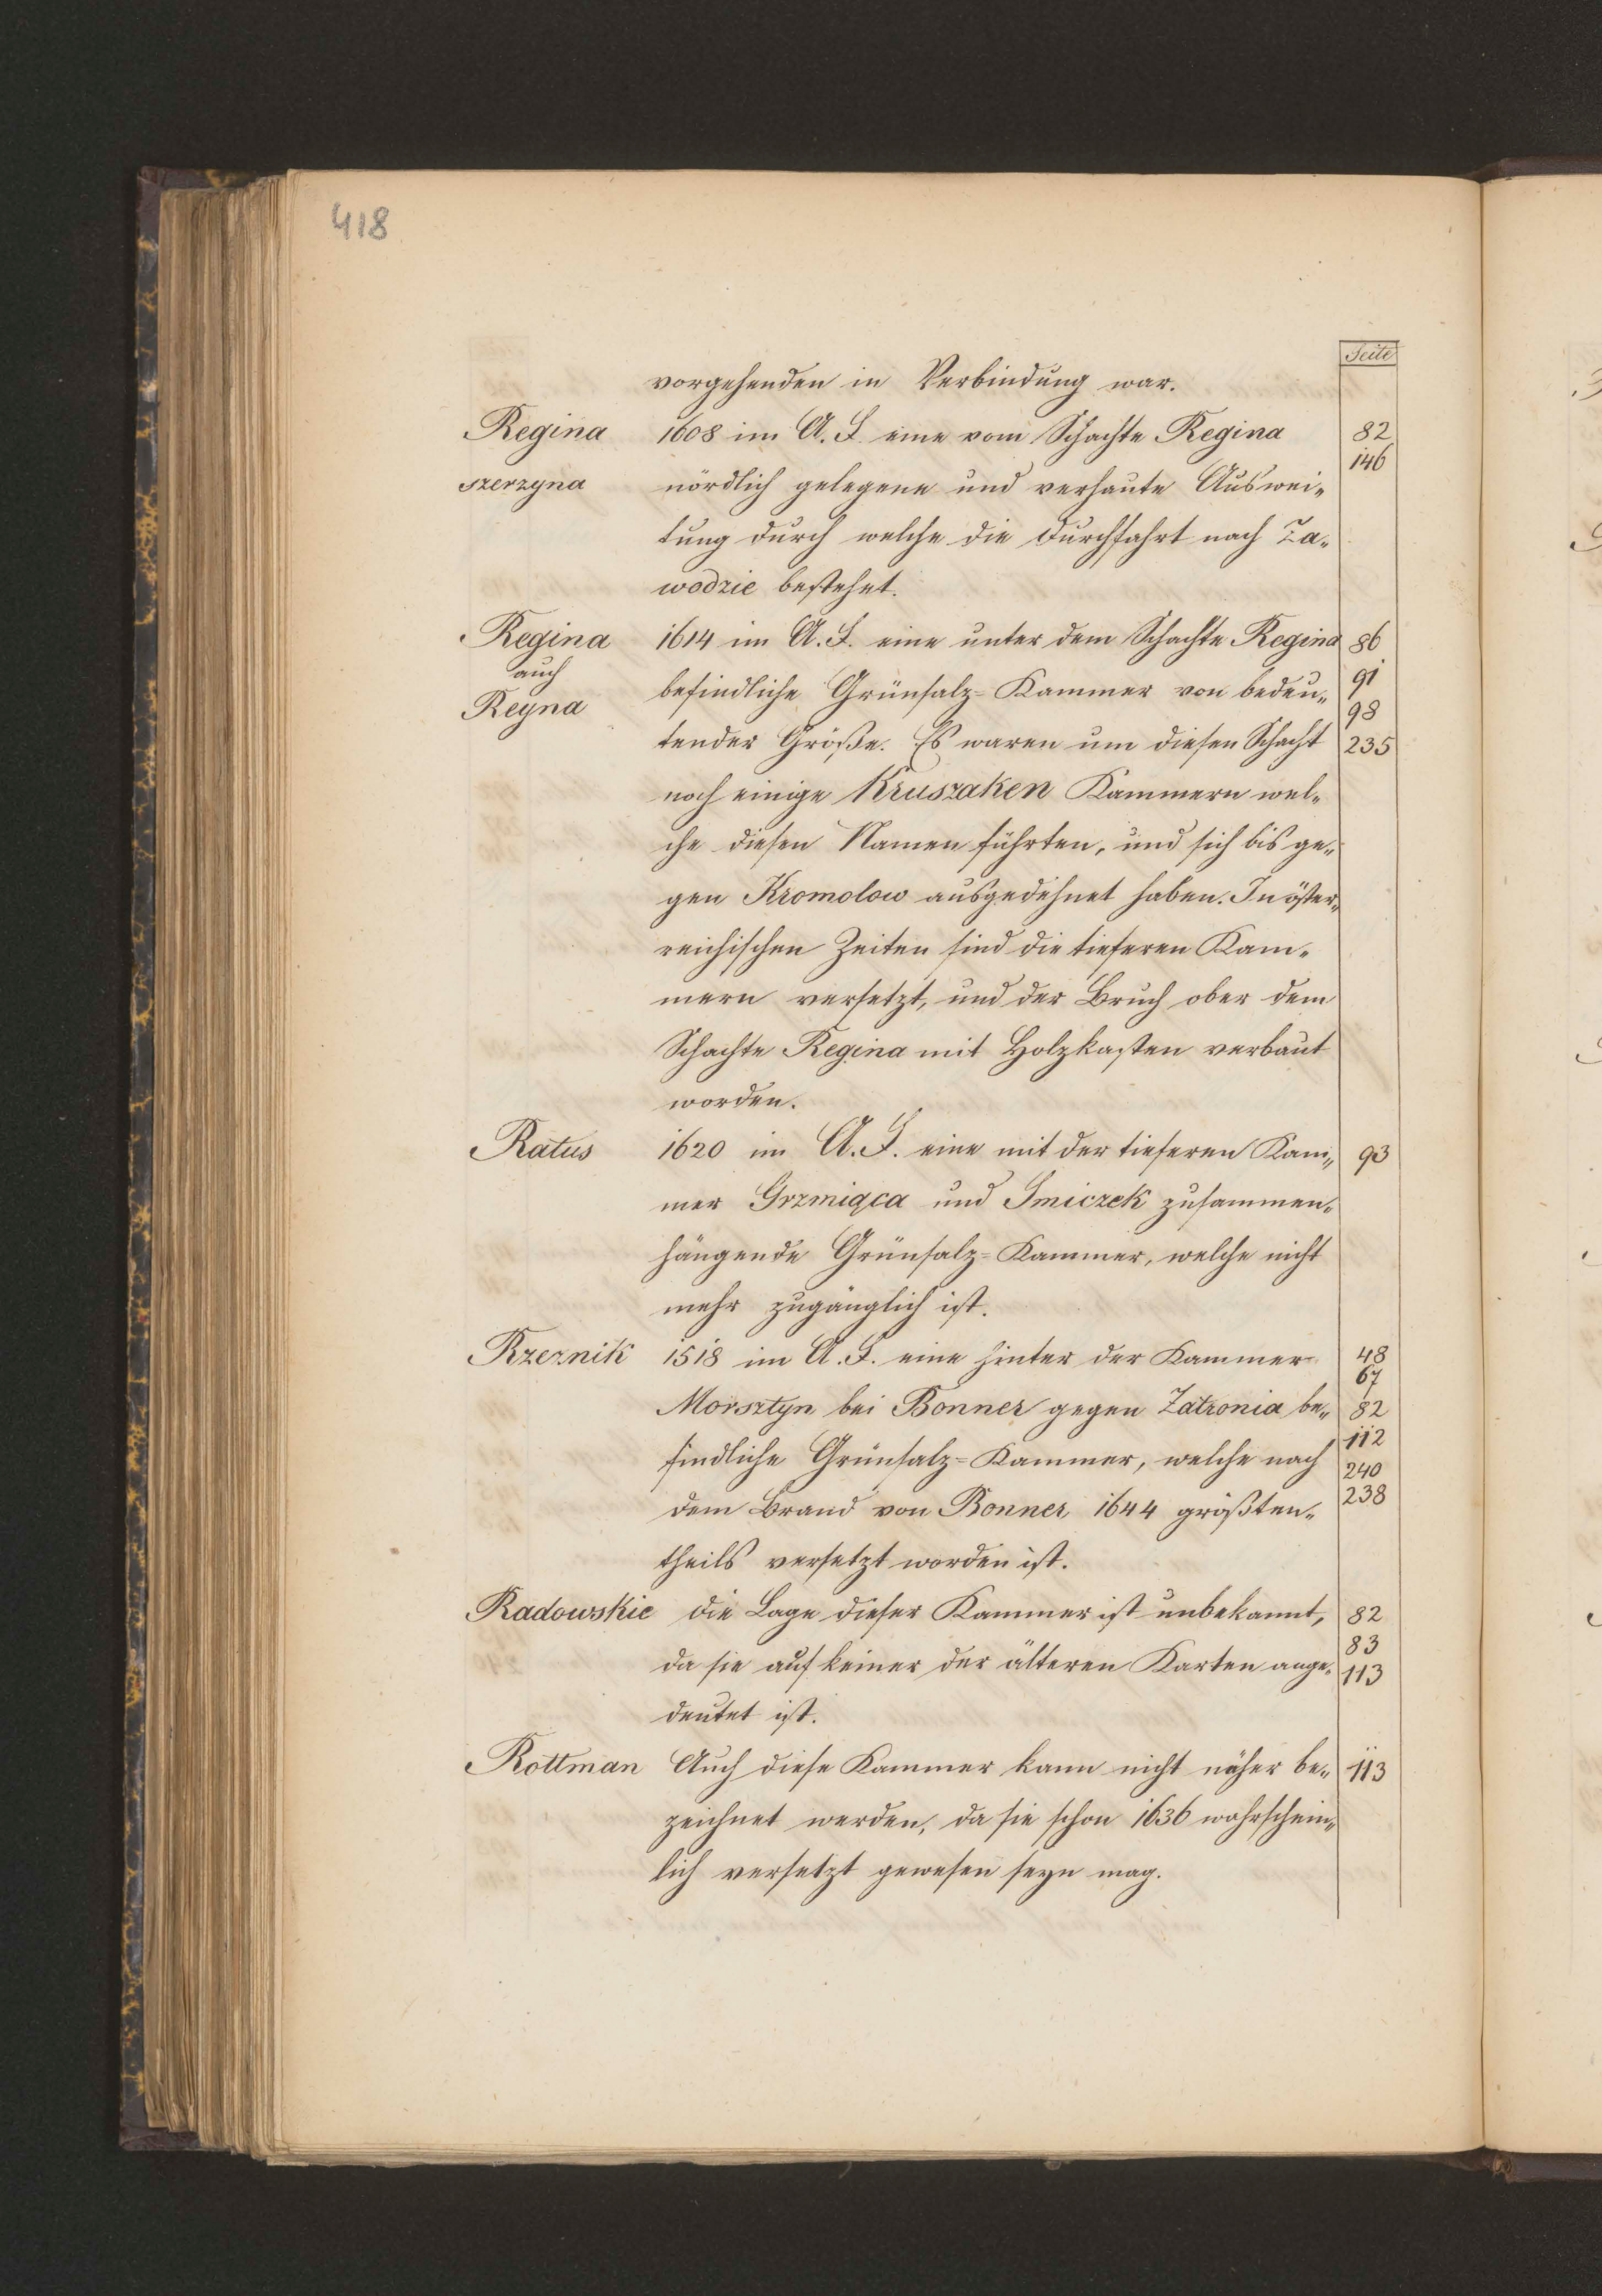 418
Seite
vorgehenden in Verbindung war.
Regina 1608 im A. F. eine vom Schachte Regina 82
146
szerzyna nördlich gelegene und verhaute Auswei„
tung durch welche die Durchfahrt nach Za„
wodzie bestehet.
Regina 1614 im A. F. eine unter dem Schachte Regina 86
auch
Reyna befindliche Grünsalz=Kammer von bedeu„ 91
98
tender Größe. Es waren um diesen Schacht 235
noch einige Kruszaken Kammern wel„
che diesen Namen führten, und sich bis ge„
gen Kromolow ausgedehnet haben. In öster„
reichischen Zeiten sind die tieferen Kam„
mern versetzt, und der Bruch ober dem
Schachte Regina mit Holzkasten verbaut
worden.
Ratus 1620 im A. F. eine mit der tieferen Kam„ 93
mer Grzmiąca und Smiczek zusammen„
hängende Grünsalz=Kammer, welche nicht
mehr zugänglich ist.
Rzeznik 1518 im A. F. eine hinter der Kammer 48
67
Morsztyn bei Bonner gegen Zatronia be„ 82
112
findliche Grünsalz=Kammer, welche nach 240
dem Brand von Bonner 1644 größten„ 238
theils versetzt worden ist.
Radowskie die Lage dieser Kammer ist unbekannt, 82
83
da sie auf keiner der älteren Karten ange„ 113
deutet ist.
Rottman Auch diese Kammer kann nicht näher be„ 113
zeichnet werden, da sie schon 1636 wahrschein„
lich versetzt gewesen seyn mag.